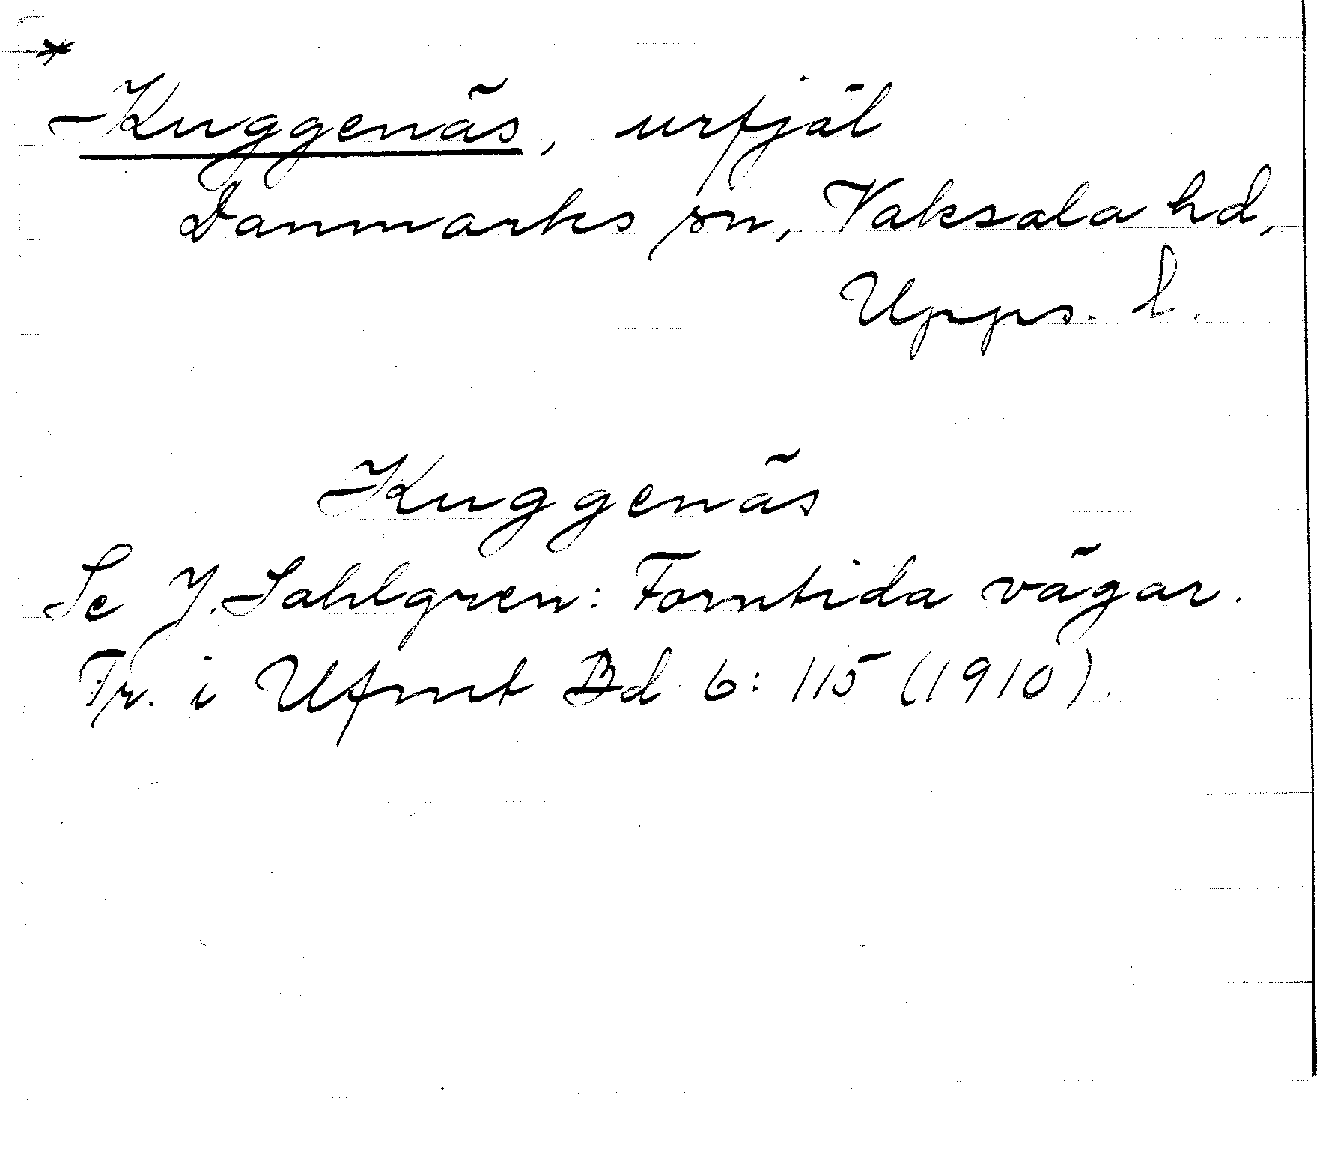 *
Kuggenäs, urfjäl
Danmarks sn, Vaksala hd,
Upps. l.
Kuggenäs
Se J. Sahlgren: Forntida vägar.
Tr. i Ufmt Bd 6: 115 (1910).